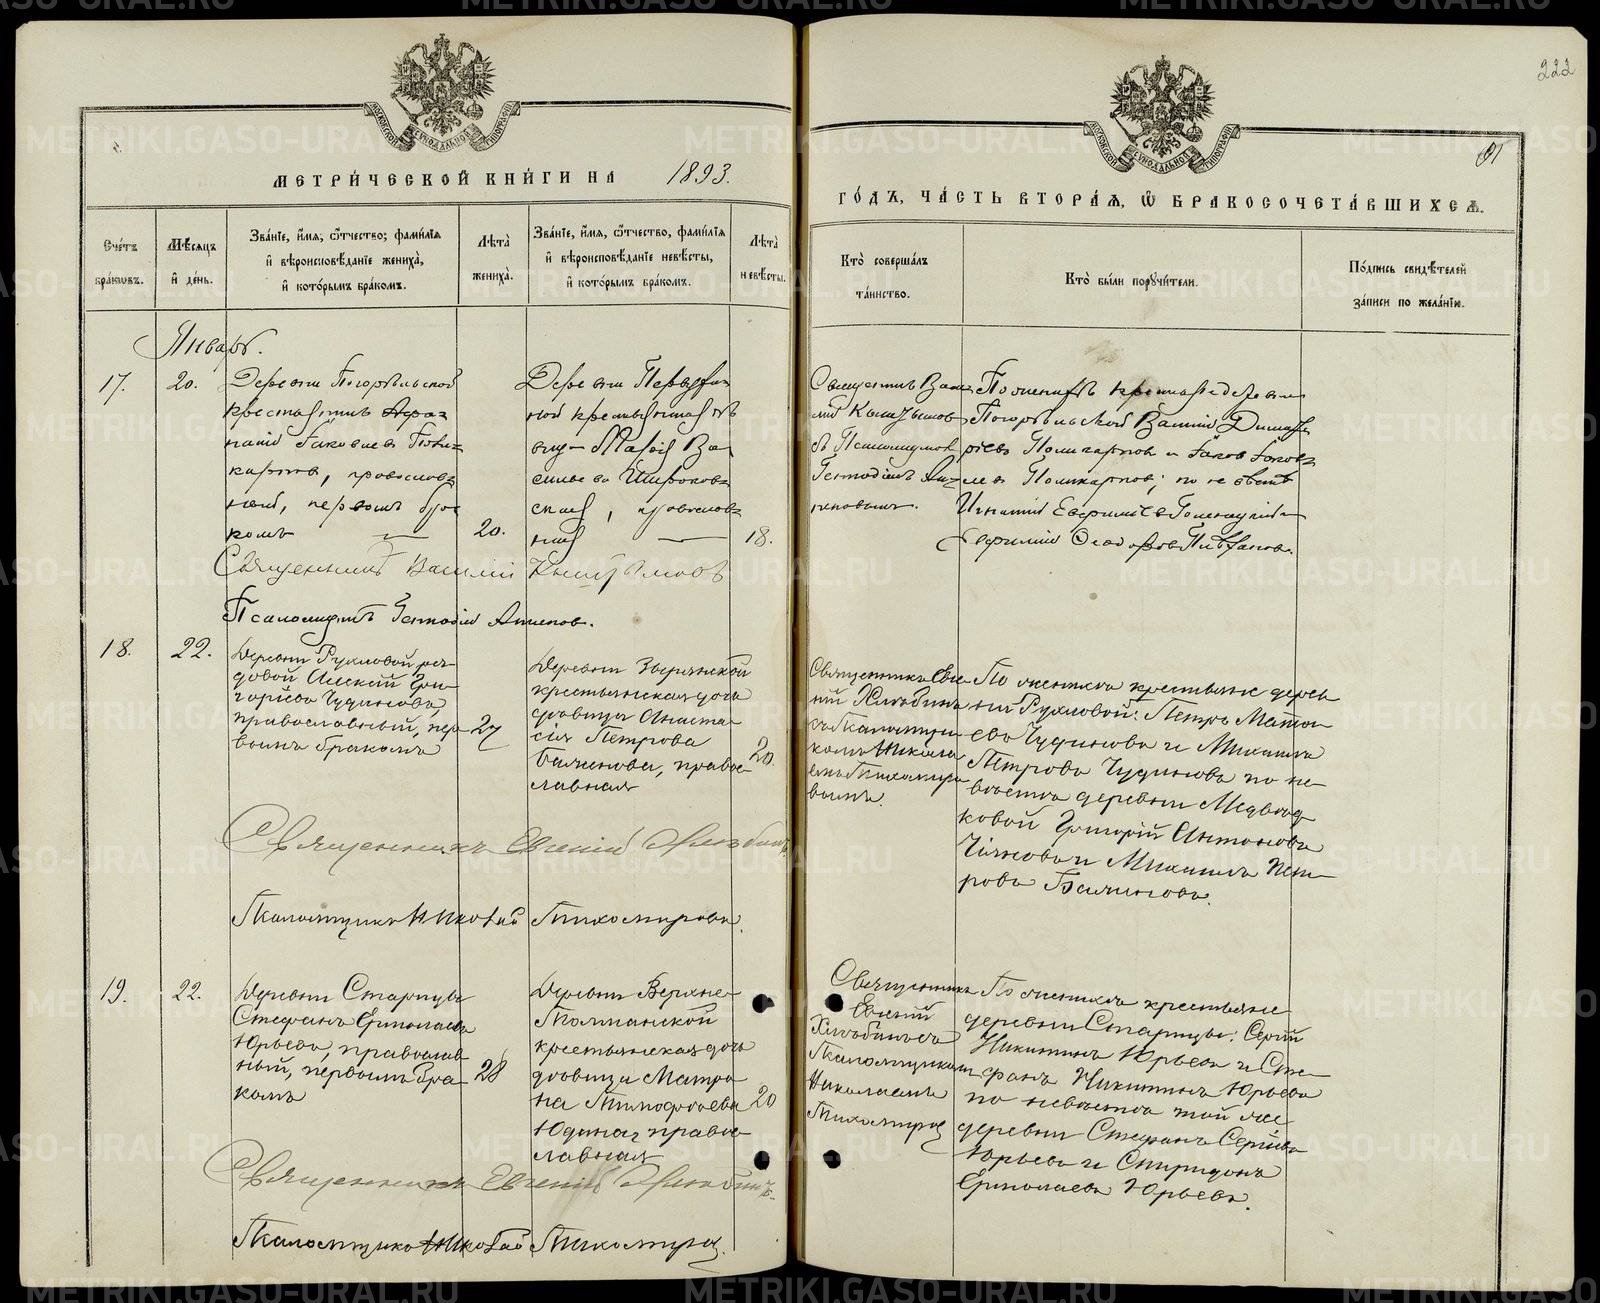 222
91
МЕТРИ́ЧЕСКОЙ КНИ́ГИ НА 1893.
ГО́ДЪ, ЧА́СТЬ ВТОРА́Я, Ѡ БРАКОСОЧЕТА́ВШИХСЯ.
Сче́тъ бра́кѡвъ.
Мѣ́сяцъ и де́нь.
Зва́нїе, и́мя, ѻ́тчество, фами́лїя и вѣроисповѣ́данїе жениха̀, и кото́рымъ бра́комъ.
Лѣта̀ жениха̀.
Зва́нїе, и́мя, ѻ́тчество, фами́лїя и вѣроисповѣ́данїе невѣ́сты, и кото́рымъ бра́комъ.
Лѣта̀ невѣ́сты.
Кто̀ соверша́лъ та́инство.
Кто̀ бы́ли порꙋчи́тели.
По́дпись свидѣ́телей за́писи по жела́нїю.
Январь.
17.
20.
Деревни Погорѣльской
крестьянинъ Афа-
насій Іаковлевъ Поли-
карповъ, православ-
ный, первымъ бра-
комъ
20.
Деревни
ной крестьянская дѣ-
вица Марія Ва-
сильева Широков-
ская, православ-
ная
18.
Священникъ Васи-
лій
съ Псаломщиком
Геннадіемъ Ан-
По женихѣ крестьяне деревни
Погорѣльской Василій Димит-
ріевъ Поликарповъ и Іаковъ Іаков-
левъ Поликарповъ; по невѣстѣ
Игнатій Евфиміевъ
Евфимій Ѳеодоровъ
Священникъ Василій
Псаломщикъ Геннадій
18.
22.
Деревни Рухловой ря-
довой Алексій Гри-
горіевъ Чудиновъ,
православный, пер-
вымъ бракомъ
27
Деревни Зырянской
крестьянская дочь
дѣвица Анаста-
сія Петрова
Балинова, право-
славная
20.
Священникъ Евге-
ній Хлѣбинъ
съ Псаломщи-
комъ Никола-
емъ Тихомиро-
вымъ.
По женихѣ крестьяне дерев-
ни Рухловой: Петръ Матѳе-
евъ Чудиновъ и Михаилъ
Петровъ Чудиновъ по не-
вѣстѣ деревни Медвѣд-
ковой Григорій Антоновъ
и Михаилъ Пет-
ровъ Балиновъ.
Священникъ Евгеній Хлѣбинъ.
Псаломщикъ Николай Тихомировъ.
19.
22.
Деревни Старицы
Стефанъ Ермолаевъ
Юрьевъ, православ-
ный, первымъ бра-
комъ
28
Деревни Верхне-
Толманской
крестьянская дочь
дѣвица Матро-
на Тимофѣева
Юдина, право-
славная
20
Священникъ
Евгеній
Хлѣбинъ съ
Псаломщикомъ
Николаемъ
Тихомиров
По женихѣ крестьяне
деревни Старицы: Сергій
Никитинъ Юрьевъ и Сте-
фанъ Никитинъ Юрьевъ
по невѣстѣ той же
деревни Стефанъ Сергіевъ
Юрьевъ и Спиридонъ
Ермолаевъ Юрьевъ.
Священникъ Евгеній Хлѣбинъ.
Псаломщикъ Николай Тихомиров.
METRIKI.GASO-URAL.RU